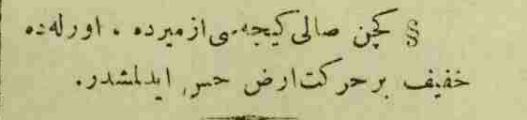 § كچن صالی كیجه‌سی ازمیرده ، اورله‌ده
خفیف بر حركت ارض حس ایدلمشدر.